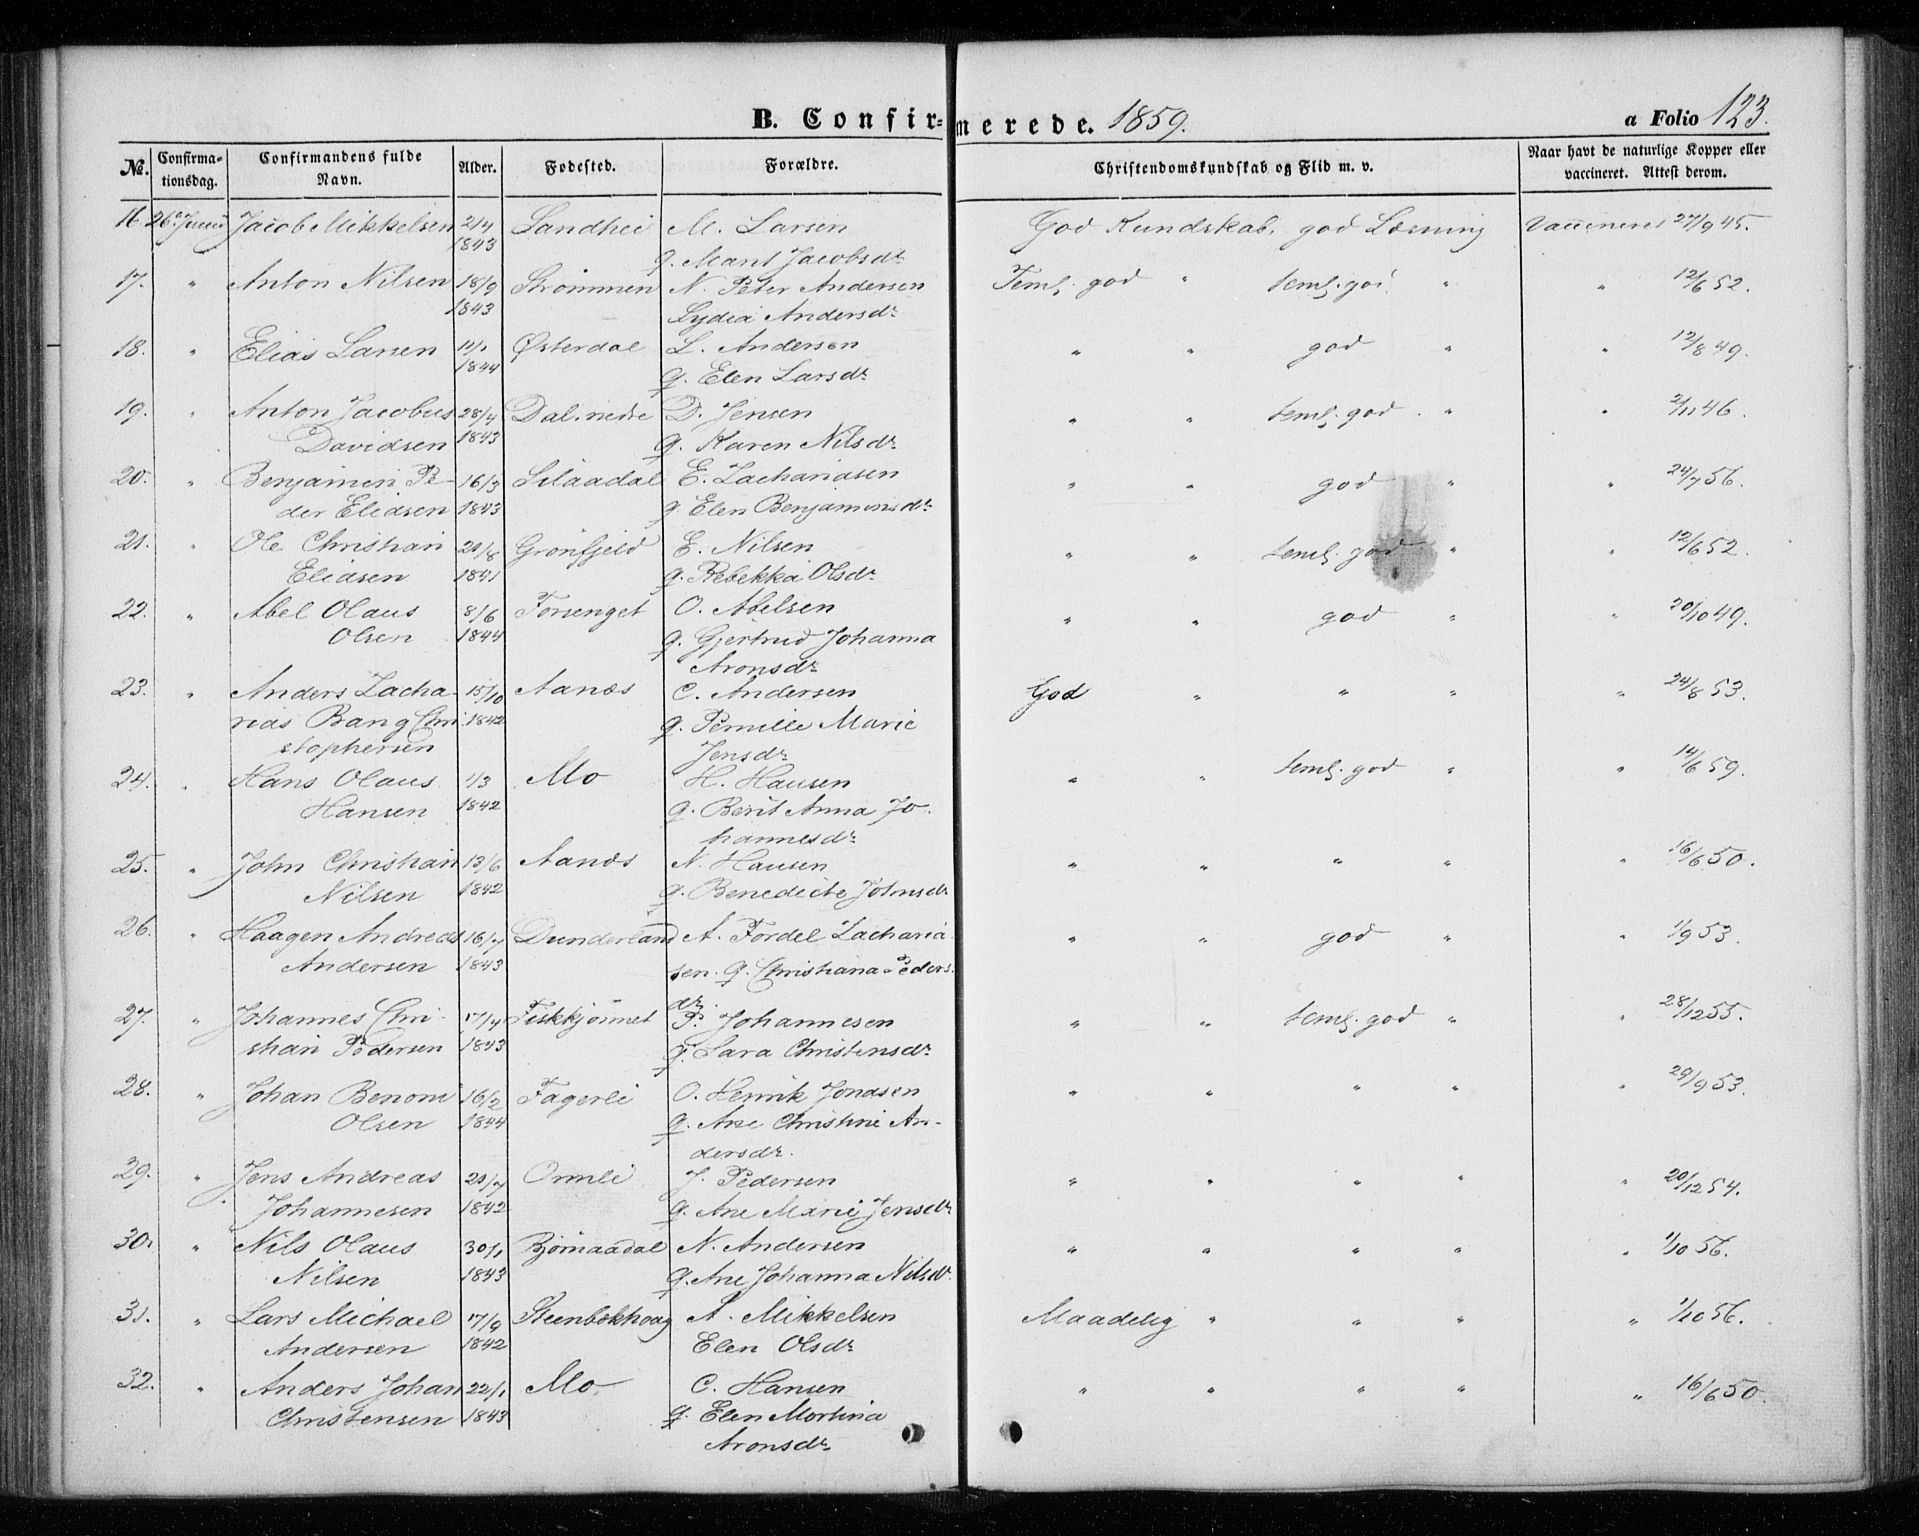 B. Confirmerede. 1859.
a Folio 123.
No. Confirmationsdag. Confirmandens fulde Navn. Alder. Fødested. Forældre. Christendomskundskab og Flid m. v. Naar havt de naturlige Kopper eller vaccineret. Attest derom.
16. 26 Juni Jacob Mikkelsen 21/4 Sandhei M. Larsen God Kundskab, god Læsning Vaccineret 27/9 45.
1843 g. Marit Jacobsdr
17. " Anton Nilsen 18/9 Strømmen N. Peter Andersen Teml. god " teml. god " " 12/6 52.
1843 Lydia Andersdr
18. " Elias Larsen Østerdal L. Andersen " " god " " 12/8 49.
1844 g. Elen Larsdr
19. " Anton Jacobus 28/4 Dal. nedre D. Jensen " " teml. god " " 2/11 46.
Davidsen 1843 g. Karen Nilsdr
20. " Benjamin Pe- 16/3 E. Zachariasen " " god " " 24/7 56.
der Eliasen 1843 g. Elen Benjaminsdr
21. " Ole Christian 20/8 Grønfjeld E. Nilsen " " teml. god " " 12/6 52.
Eliasen 1841 g. Rebekka Olsdr
22. " Abel Olaus 8/6 Forsenget O. Abelsen " " god " " 20/10 49.
Olsen 1844 g. Gjertrud Johanna
Aronsdr
23. " Anders Zacha- 15/10 Aanæs C. Andersen God " " " " 24/8 53.
rias Bang Chri 1842 g. Pernille Marie
stophersen Jensdr
24. " Hans Olaus 1/3 Mo H. Hansen " " teml. god " " 14/6 59.
Hansen 1842 g. Berit Anna Jo-
hannesdr
25. " John Christian 13/6 Aanæs N. Hansen " " " " " 16/6 50.
Nilsen 1842 g. Benedicte Johnsdr
26. " Haagen Andreas 16/7 Dunderland A. Fordel Zacharia " " god " " 1/9 53.
Andersen 1843 sen. g. Christiana Peders
dr.
27. " Johannes Chri- 17/4 Fiskkjønnet P. Johannesen " " teml. god " " 28/12 55.
stian Pedersen 1843 g. Sara Christensdr
28. " Johan Benoni 16/2 Fagerli O. Henrik Jonasen " " " " " 29/9 53.
Olsen 1844 g. Ane Christine An-
dersdr.
29. " Jens Andreas 20/7 Ormli J. Pedersen " " " " " 20/12 54.
Johannesen 1842 g. Ane Marie Jensdr
30. " Nils Olaus 30/1 Bjørnaadal N. Andersen " " " " " 1/10 56.
Nilsen 1843 g. Ane Johanna Nilsdr
31. " Lars Michael 17/9 Steenbækhaug A. Mikkelsen Maadelig " " " " 1/10 56.
Andersen 1842 Elen Olsdr
32. " Anders Johan 22/1 Mo C. Hansen " " " " " 16/6 50.
Christensen 1843 g. Elen Martina
Aronsdr